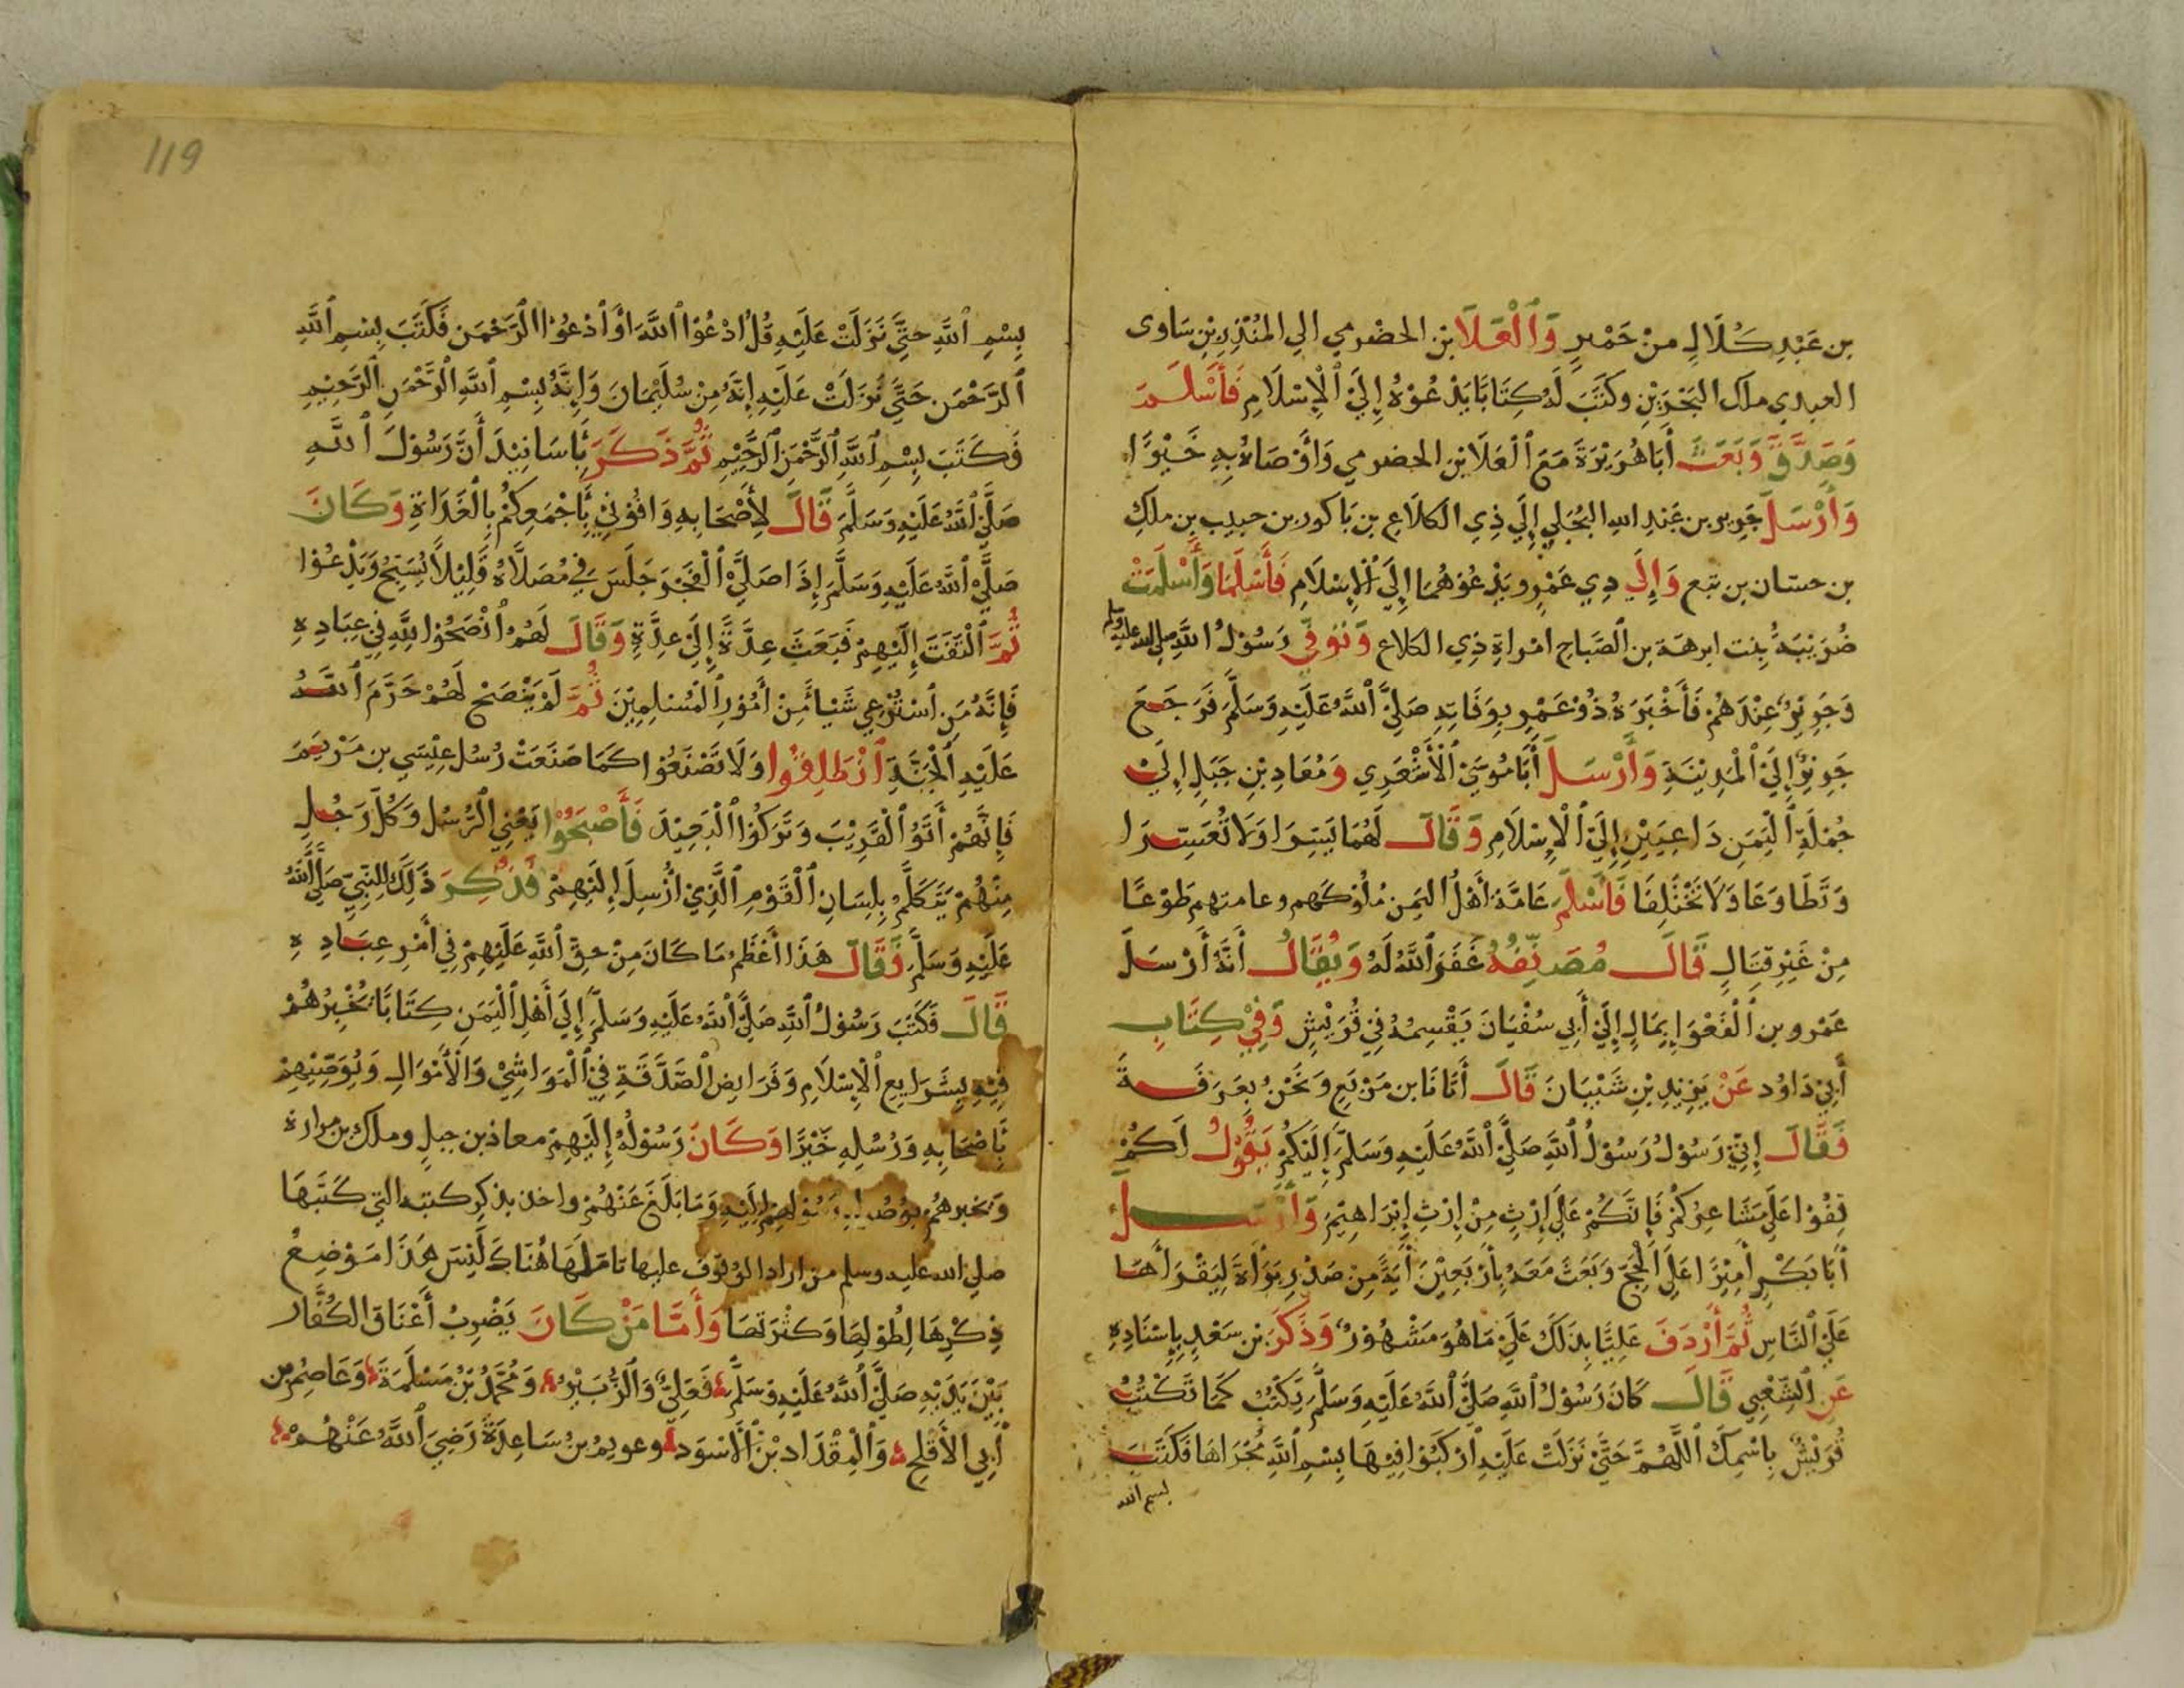 بن عَبْدِ كُلَالٍ مِنْ حَمْيرٍ وَٱلْعَلَا بن الحضرمي الي المُنْذِرِ بْنِ سَاوى
العبدي ملك البَحْرَيْنِ وكَتَبَ لَهُ كِتَابًا يَدْعُوْهُ إِلَيَ ٱلْإِسْلَامِ فَأَسْلَمَ
وَصَدَّقَ وَبَعَثَ أَبَا هُرَيْرَةَ مَعَ ٱلْعَلَا بْنِ الحضرمي وَأَوْصَاهُ بِهِ خَيْرًا
وَأَرْسَلَ جَرِير بن عَبْدِ الله البُجَلِي إِلَي ذِي الكَلَاعِ بن بَاكور بن حبيب بن ملك
بن حسان بن تبع وَإِلَي ذِي عَمْرٍو يَدْعُوْهُمَا إِلَيَ ٱلْإِسْلَامِ فَأَسْلَمَا وَأَسْلَمَتْ
ضُرَيْبَةُ بِنت ابرهة بن الصَّباح امْراةِ ذِي الكلاع وَتُوُفِّي رَسُوْلُ اللَّهِ صلى الله عليه وسلم
وَجَرِيْرٌ عِنْدَهُمْ فَأَخْبَرَهُ ذُوْ عَمْرٍ بِوَفَاتِهِ صَلَّيَ ٱللَّهُ عَلَيْهِ وَسَلَّمَ فَرَجَعَ
جَرِيْرٌ إِلَيَ ٱلْمَدِيْنَةِ وَأَرْسَلَ أَبَا مُوْسَيَ ٱلْأَشْعَرِي وَمُعَاذ بْنِ جَبَلٍ إِلَيَ
جُمْلَةِ ٱلْيَمَنِ دَاعِيَيْنِ إِلَيَ ٱلْإِسْلَامِ وَقَالَ لَهُمَا يَسِّرَا وَلَا تُعَسِّرَا
وَتَطَاوَعَا وَلَا تَخْتَلِفَا فَأَسْلَمَ عَامَّةُ أَهْلُ اليَمن مُلُوْكَهم وعامتهم طَوْعًا
مِنْ غَيْرِ قِتَالٍ قَالَ مُصَنِّفُهُ غَفَرَ ٱللَّهُ لَهُ وَيُقَالُ أَنَّهُ أَرْسَلَ
عَمْرو بن ٱلْفَغْوَا بِمَالٍ إِلَيَ أَبِي سُفْيَانَ يَقْسِمُهُ فِيْ قُرَيْشٍ وَفِيْ كِتَابِ
أَبِيْ دَاوُد عَنْ يَزِيْدِ بْنِ شَيْبَانَ قَالَ أَتَانَا بن مَرْبَعٍ وَنَحْنُ بِعَرَفَةَ
فَقَالَ إِنِّيْ رَسُوْلُ رَسُوْلُ ٱللَّهِ صَلَّيَ ٱللَّهُ عَلَيْهِ وَسَلَّمَ إِلَيْكُمْ يَقُوْلُ لَكُمْ
قِفُوْا عَلَيَ مَشَاعِرِكُمْ فَإِنَّكُمْ عَلَيَ إِرْثٍ مِنْ إِرْثِ إِبْرَاهِيْمَ وَأَرْسَلَ
أَبَا بَكْرٍ أَمِيْرًا عَلَيَ الْحَجِّ وَبَعَثَ مَعَهُ بِأَرْبَعِيْنَ أَيَةً مِنْ صَدْرِ بَرَأَةَ لِيَقْرَأَهَا
عَلَيَ ٱلنَّاسِ ثُمَّ أَرْدَفَ عَلِيًّا بِذَلَكَ عَلَيَ مَا هُوَ مَشْهُوْرٌ وَذَكَرَ بْن سَعْدٍ بِإِسْنَادِهِ
عَنِ ٱلشَّعْبِي قَالَ كَانَ رَسُوْلُ ٱللَّهِ صَلَّيَ ٱللَّهُ عَلَيْهِ وَسَلَّمَ يَكْتُبُ كَمَا تَكْتُبُ
قُرَيْشٌ بِاسْمِكَ ٱللَّهُمَّ حَتَّيَ نَزَلَتْ عَلَيْهِ ٱرْكَبُوْا فِيْهَا بِسْمِ ٱللَّهِ مُجْرَاهَا فَكَتَبَ
بسم الله
بِسْمِ ٱللَّهِ حتَّيَ نَزَلَتْ عَلَيْهِ قُلُ ادْعُوْا ٱللَّهَ أَوْ ٱدْعُوْا ٱلرَّحْمَن فَكَتَبَ بِسْمِ ٱللَّهِ
ٱلرَّحْمَن حَتَّيَ نَزَلَتْ عَلَيْهِ إِنَّهُ مِنْ سُلَيْمَانَ وَإِنَّهُ بِسْمِ ٱللَّهِ ٱلرَّحْمَنِ ٱلرَّحِيْمِ
فَكَتَبَ بِسْمِ ٱللَّهِ ٱلرَّحْمَنِ ٱلرَّحِيْمِ ثُمَّ ذَكَرَ بِأَسَانِيْدَ أَنَّ رَسُوْلَ ٱللَّهِ
صَلَّيَ ٱللَّهُ عَلَيْهِ وَسَلَّمَ قَالَ لِأَصْحَابِهِ وَافُوْنِيْ بِأَجْمَعِكُمْ بِالْغَدَاةِ وَكَانَ
صَلَّيَ ٱللَّهُ عَلَيْهِ وَسَلَّمَ إِذَا صَلَّيَ ٱلْفَجْرَ جَلَسَ فِيْ مُصَلَّاهُ قَلِيْلًا يُسَبِّحُ وَيَدْعُوْا
ثُمَّ ٱلْتَفَتَ إِلَيْهِمْ فَبَعَثَ عِدَّةً إِلَيَ عِدَّةٍ وَقَالَ لَهُمُ ٱنْصَحُوْا لِلَّهِ فِيْ عِبَادِهِ
فَإِنَّهُ مَنِ ٱسْتُرْعِي شَيْأً مِنْ أُمُوْرِ ٱلْمُسْلِمِيْنَ ثُمَّ لَمْ يَنْصَحْ لَهُمْ حَرَّمَ ٱللَّهُ
عَلَيْهِ ٱلْجَنَّةَ ٱنْطَلِقُوا وَلَا تَصْنَعُوْا كَمَا صَنَعَتْ رُسُل عِيْسَي بن مَرْيَمَ
فَإِنَّهُمْ أَتَوُ ٱلْقَرِيْبَ وَتَرَكُوْا ٱلْبَعِيْدَ فَأَصْبَحُوْا يَعْنِي ٱلرُّسُل وَكُلُّ رَجُلٍ
مِنْهُمْ يَتَكَلَّمُ بِلِسَانِ ٱلْقَوْمِ ٱلَّذِيْ أُرْسِلَ إِلَيْهِمْ فَذُكِرَ ذَلِكَ لِلنَّبِيِّ صَلَّيَ ٱللَّهُ
عَلَيْهِ وَسَلَّمَ فَقَالَ هَذَا أَعْظَمُ مَا كَانَ مِنْ حَقِّ ٱللَّهِ عَلَيْهِمْ فِي أَمْرِ عِبَادِهِ
قَالَ فَكَتَبَ رَسُوْلُ ٱللَّهِ صَلَّيَ ٱللَّهُ عَلَيْهِ وَسَلَّمَ إِلَيَ أَهْلِ ٱلْيَمَنِ كِتَابًا يُخْبِرُهُمْ
فِيْهِ بِشَرَايِعِ ٱلْإِسْلَامِ وَفَرَايِضِ ٱلصَّدَقَةِ فِيْ ٱلْمَوَاشِيْ وَٱلْأَمْوَالِ وَيُوَصِّيْهِمْ
بِأَصْحَابِهِ وَرُسُلِهِ خَيْرًا وَكَانَ رَسُوْلُهُ إِلَيْهِمْ معاذ بن جبلٍ وملك بن مرارة
وَيخبرهُمْ بِوُصُولِ رَسُوْلِهِمْ إِلَيْهِ وَمَا بَلَغَ عَنْهُمْ واخذ بذكِر كتبه التي كَتَبَهَا
صلي الله عليه وسلم من اراد الوُقوْفَ عليها تامّلَهَا هُنَاكَ لَيْسَ هَذَا مَوْضِعُ
ذِكْرِهَا لِطُوْلِهَا وَكثْرَتِهَا وَأَمَّا مَنْ كَانَ يَضْرِبُ أَعْنَاقَ الكُفَّار
بَيْنَ يَدَيْهِ صَلَّيَ ٱللَّهُ عَلَيْهِ وَسَلَّمَ فَعَلِيٌّ وَٱلزُّبَيْرُ وَمُحَمَّدُ بْنُ مَسْلَمَةَ وَعَاصِمُ بن
أَبِي الأَقْلَحِ وَٱلْمِقْدَاد بْنُ ٱلْأَسْوَدِ وعويمُ بنُ سَاعِدَةَ رَضِيَ ٱللَّهُ عَنْهُمْ
119